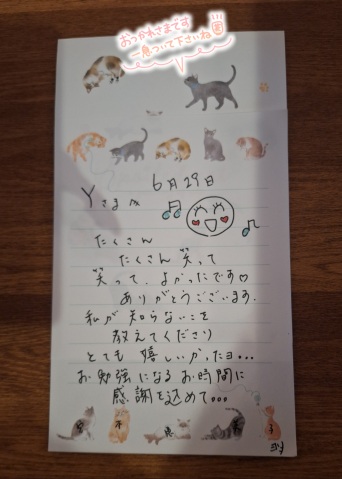 おつかれさまです
一息ついて下さいね
6月29日
Yさま
たくさん
たくさん 笑って
笑って、よかったです♡
ありがとうございます。
私が知らないことを
教えてくださり
とても 嬉しいかったョ…
お勉強になるお時間に
感謝を込めて…
子